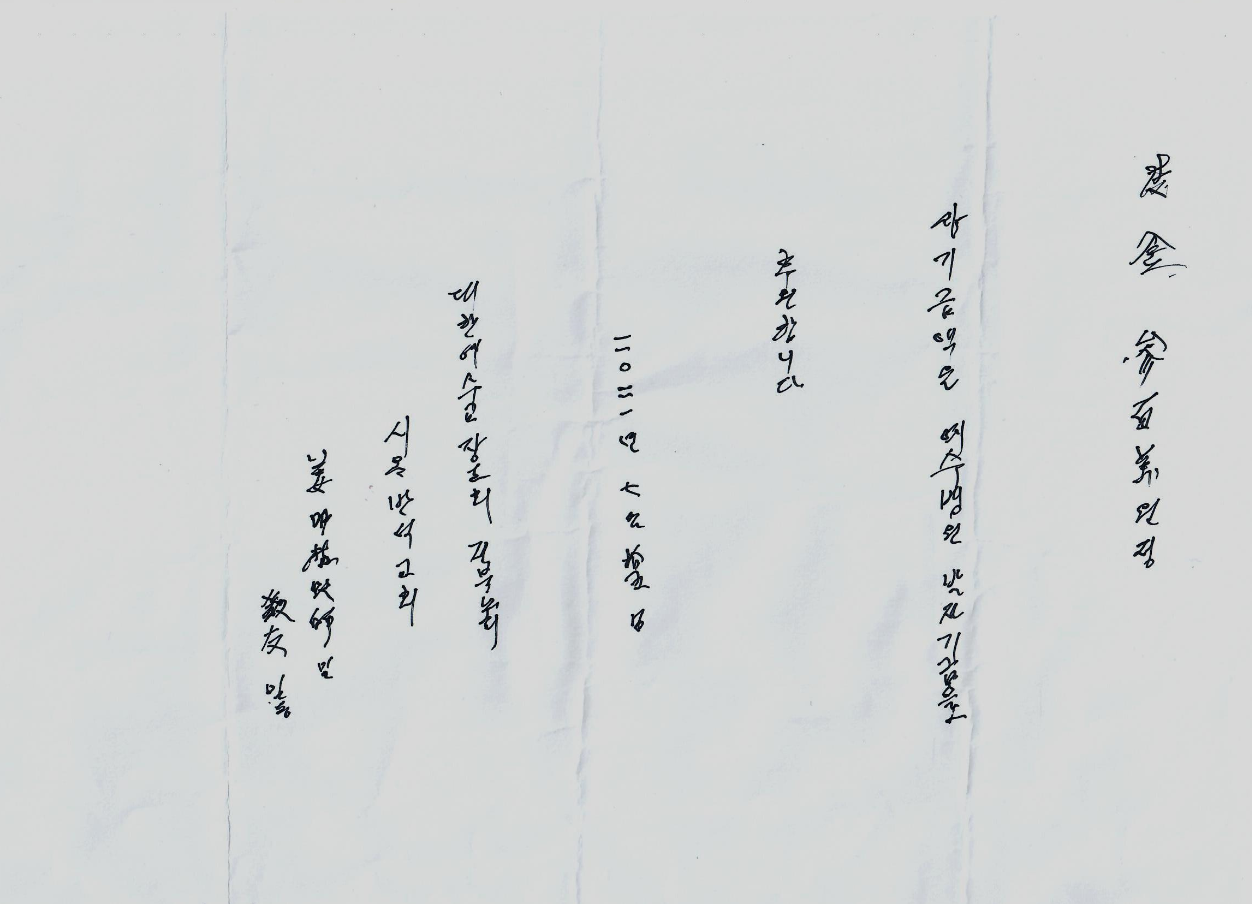 金 參百萬원정
상기금액을 예수병원 발전기금으로
후원합니다
二〇二一년 七월 일
대한예수교 장로회 전북노회
시온반석교회
姜 牧師 및
敎友 일동